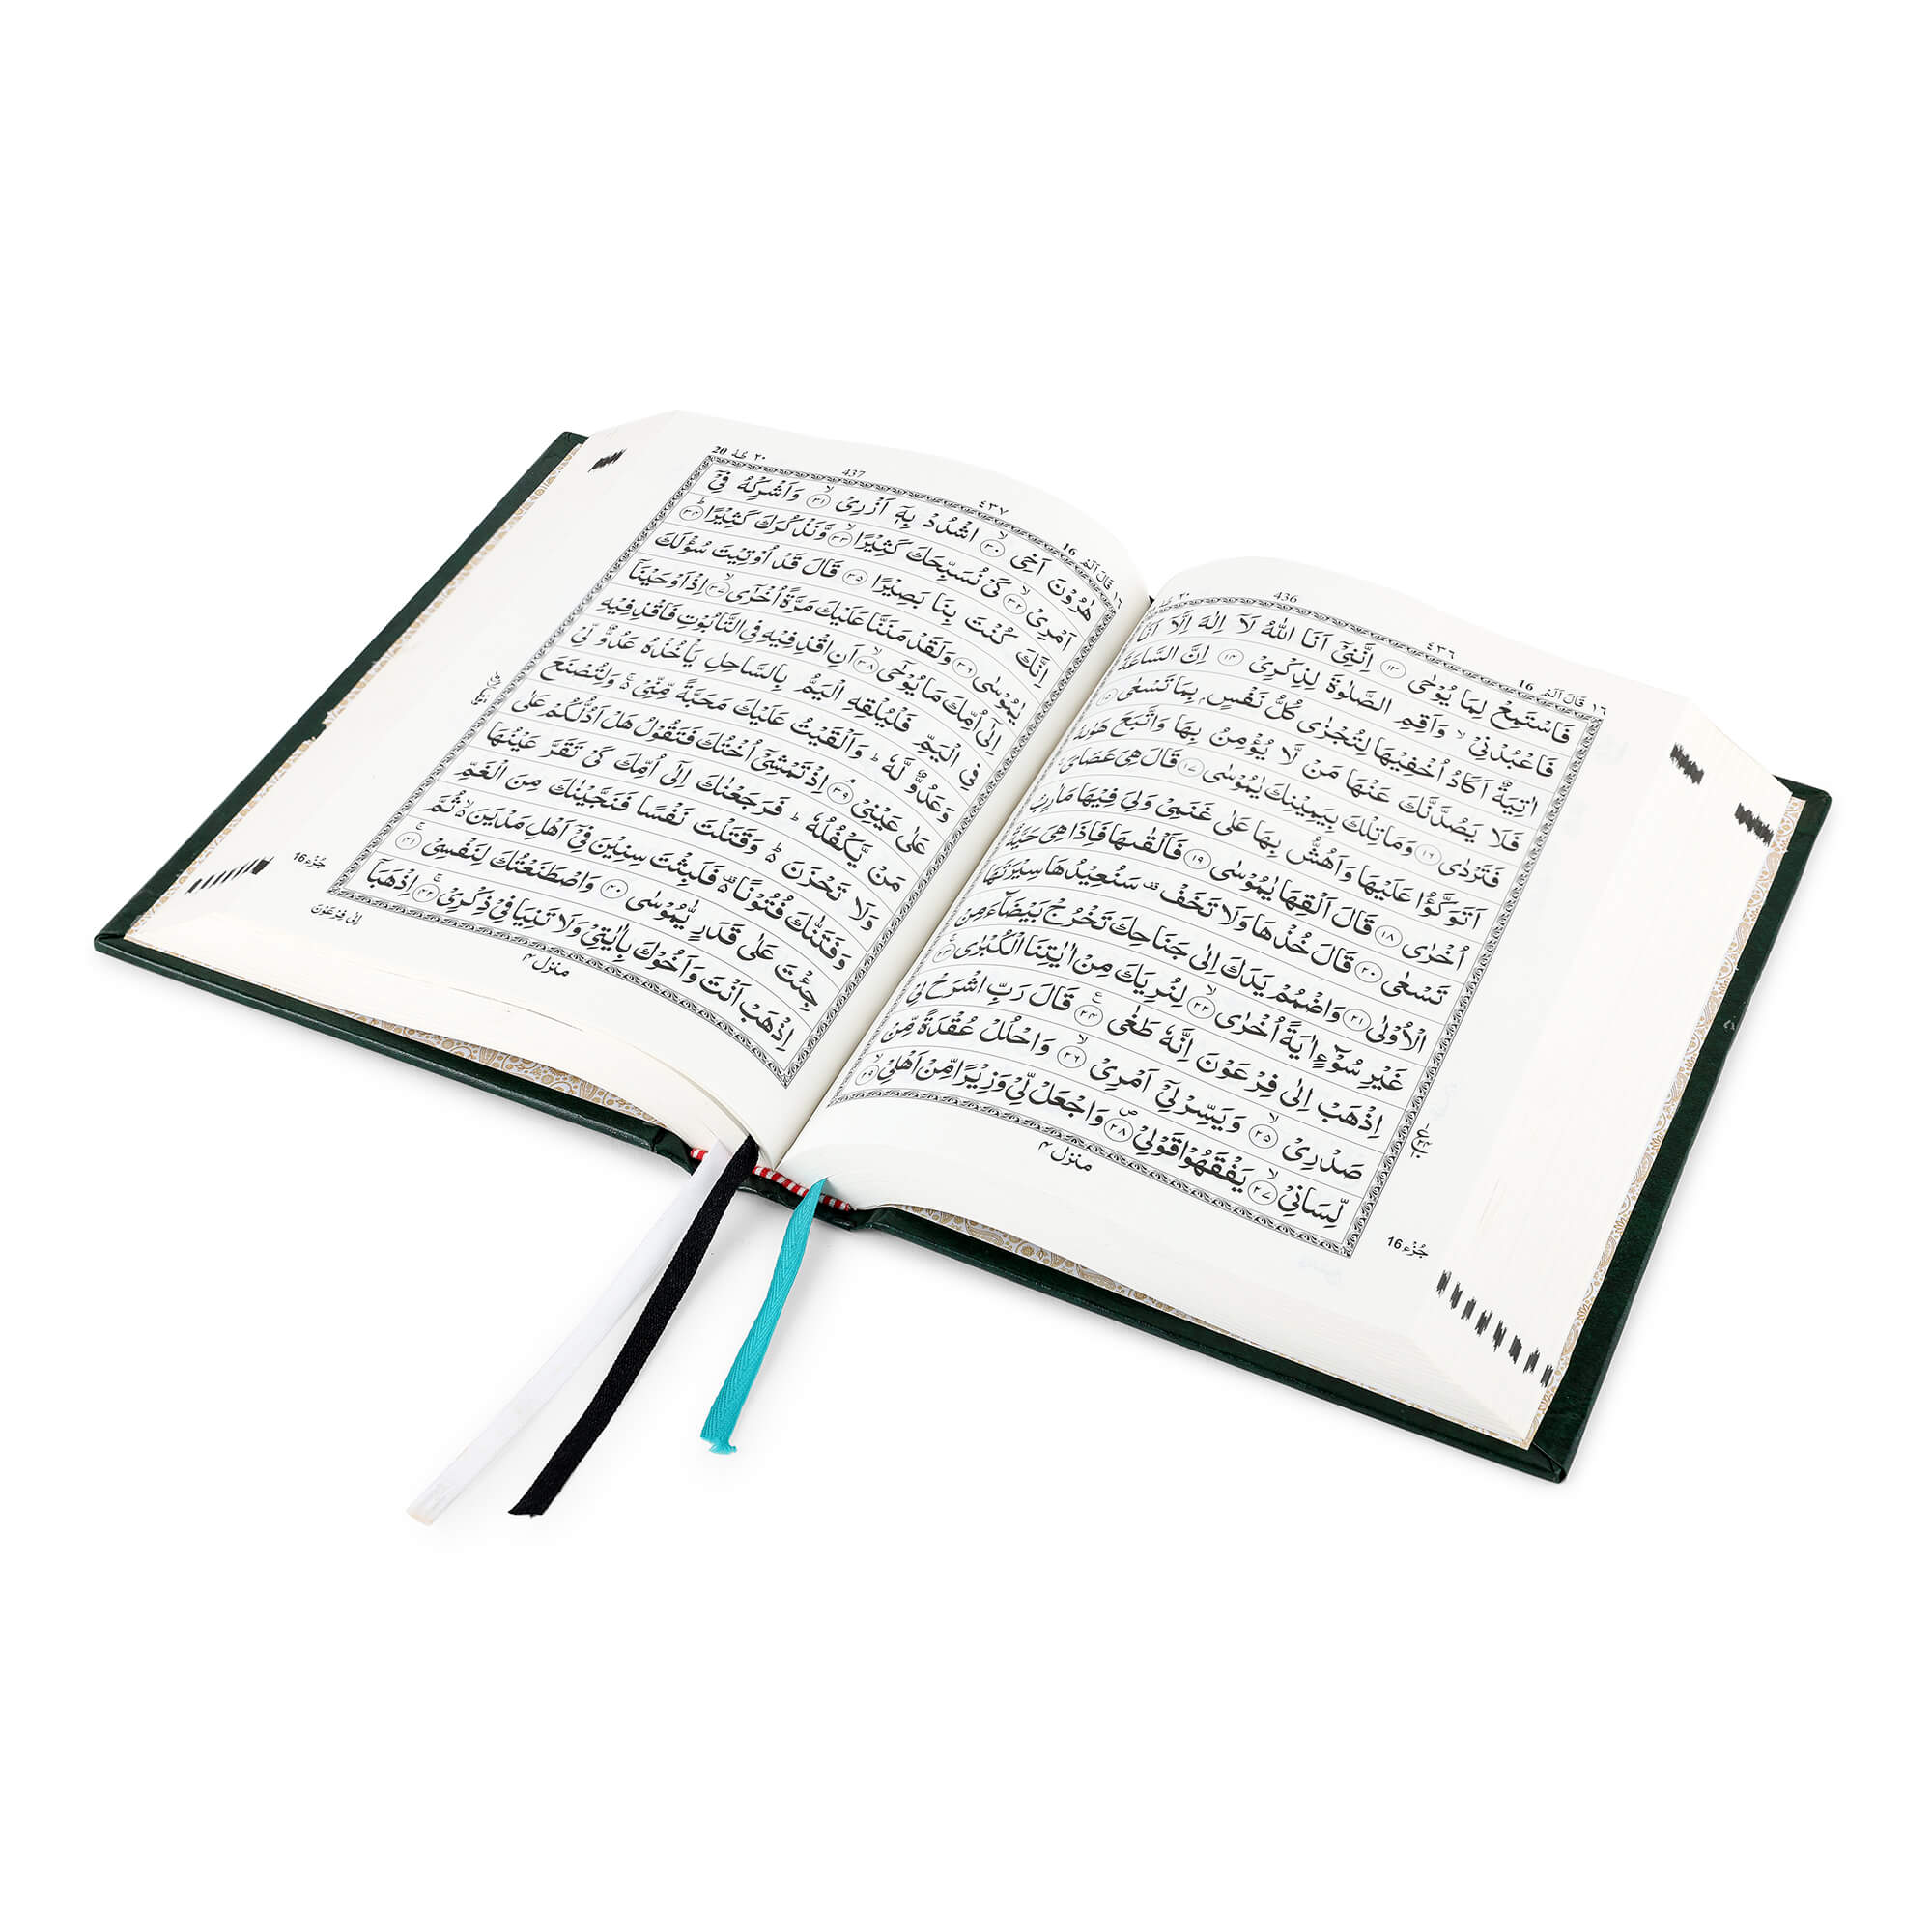 ١٦ قَالَ اَلَمْ 16
٤٣٦
436
٢٠
فَاسْتَمِعْ لِمَا يُوْحٰى ١٣ اِنَّنِيْٓ اَنَا اللّٰهُ لَآ اِلٰهَ اِلَّآ اَنَا
فَاعْبُدْنِيْ ۙ وَاَقِمِ الصَّلٰوةَ لِذِكْرِيْ ١٤ اِنَّ السَّاعَةَ
اٰتِيَةٌ اَكَادُ اُخْفِيْهَا لِتُجْزٰى كُلُّ نَفْسٍۢ بِمَا تَسْعٰى ١٥
فَلَا يَصُدَّنَّكَ عَنْهَا مَنْ لَّا يُؤْمِنُ بِهَا وَاتَّبَعَ هَوٰىهُ
فَتَرْدٰى ١٦ وَمَا تِلْكَ بِيَمِيْنِكَ يٰمُوْسٰى ١٧ قَالَ هِيَ عَصَايَ ۚ
اَتَوَكَّؤُا عَلَيْهَا وَاَهُشُّ بِهَا عَلٰى غَنَمِيْ وَلِيَ فِيْهَا مَاٰرِبُ
اُخْرٰى ١٨ قَالَ اَلْقِهَا يٰمُوْسٰى ١٩ فَاَلْقٰىهَا فَاِذَا هِيَ حَيَّةٌ
تَسْعٰى ٢٠ قَالَ خُذْهَا وَلَا تَخَفْ ۪ سَنُعِيْدُهَا سِيْرَتَهَا
الْاُوْلٰى ٢١ وَاضْمُمْ يَدَكَ اِلٰى جَنَاحِكَ تَخْرُجْ بَيْضَآءَ مِنْ
غَيْرِ سُوْٓءٍ اٰيَةً اُخْرٰى ۙ ٢٢ لِنُرِيَكَ مِنْ اٰيٰتِنَا الْكُبْرٰى ۚ ٢٣
اِذْهَبْ اِلٰى فِرْعَوْنَ اِنَّهٗ طَغٰى ٢٤ قَالَ رَبِّ اشْرَحْ لِيْ
صَدْرِيْ ۙ ٢٥ وَيَسِّرْ لِيْٓ اَمْرِيْ ۙ ٢٦ وَاحْلُلْ عُقْدَةً مِّنْ
لِّسَانِيْ ۙ ٢٧ يَفْقَهُوْا قَوْلِيْ ٢٨ وَاجْعَلْ لِّيْ وَزِيْرًا مِّنْ اَهْلِيْ ۙ ٢٩
منزل ٤
جُزْء 16
١٦ قَالَ اَلَمْ 16
٤٣٧
437
٢٠ طٰهٰ 20
هٰرُوْنَ اَخِي ۙ ٣٠ اشْدُدْ بِهٖٓ اَزْرِيْ ۙ ٣١ وَاَشْرِكْهُ فِيْٓ
اَمْرِيْ ۙ ٣٢ كَيْ نُسَبِّحَكَ كَثِيْرًا ۙ ٣٣ وَّنَذْكُرَكَ كَثِيْرًا ؕ ٣٤
اِنَّكَ كُنْتَ بِنَا بَصِيْرًا ٣٥ قَالَ قَدْ اُوْتِيْتَ سُؤْلَكَ
يٰمُوْسٰى ٣٦ وَلَقَدْ مَنَنَّا عَلَيْكَ مَرَّةً اُخْرٰٓى ۙ ٣٧ اِذْ اَوْحَيْنَآ
اِلٰٓى اُمِّكَ مَا يُوْحٰٓى ۙ ٣٨ اَنِ اقْذِفِيْهِ فِي التَّابُوْتِ فَاقْذِفِيْهِ
فِي الْيَمِّ فَلْيُلْقِهِ الْيَمُّ بِالسَّاحِلِ يَاْخُذْهُ عَدُوٌّ لِّيْ
وَعَدُوٌّ لَّهٗ ؕ وَاَلْقَيْتُ عَلَيْكَ مَحَبَّةً مِّنِّيْ ۚ۬ وَلِتُصْنَعَ
عَلٰى عَيْنِيْ ۘ ٣٩ اِذْ تَمْشِيْٓ اُخْتُكَ فَتَقُوْلُ هَلْ اَدُلُّكُمْ عَلٰى
مَنْ يَّكْفُلُهٗ ؕ فَرَجَعْنٰكَ اِلٰٓى اُمِّكَ كَيْ تَقَرَّ عَيْنُهَا
وَلَا تَحْزَنَ ؕ۬ وَقَتَلْتَ نَفْسًا فَنَجَّيْنٰكَ مِنَ الْغَمِّ
وَفَتَنّٰكَ فُتُوْنًا ۬۫ فَلَبِثْتَ سِنِيْنَ فِيْٓ اَهْلِ مَدْيَنَ ۙ۬ ثُمَّ
جِئْتَ عَلٰى قَدَرٍ يّٰمُوْسٰى ٤٠ وَاصْطَنَعْتُكَ لِنَفْسِيْ ۚ ٤١
اِذْهَبْ اَنْتَ وَاَخُوْكَ بِاٰيٰتِيْ وَلَا تَنِيَا فِيْ ذِكْرِيْ ۚ ٤٢ اِذْهَبَآ
منزل ٤
اِلٰى فِرْعَوْنَ
جُزْء 16